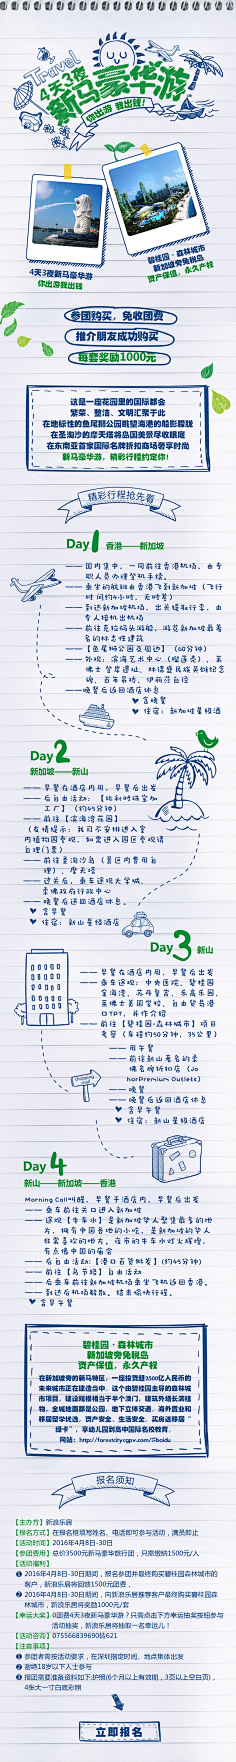 Travel
4天3夜
新马豪华游
你出游 我出钱!
4天3夜新马豪华游
你出游我出钱
碧桂园·森林城市
新加坡旁免税岛
资产保值,永久产权
参团购买,免收团费
推介朋友成功购买
每套奖励1000元
这是一座花园里的国际都会
繁荣、整洁、文明汇聚于此
在地标性的鱼尾狮公园眺望海港的船影朦胧
在圣淘沙的摩天塔将岛国美景尽收眼底
在东南亚首家国际名牌折扣商场奢享时尚
新马豪华游,精彩行程约定你!
精彩行程抢先看
Day1 香港——新加坡
——国内集中,一同前往香港机场,由专
职人员办理登机手续。
——乘坐的航班由香港飞到新加坡(飞行
时间约4小时,无时差)
——到达新加坡机场,出关提取行李,由
专人接机出机场
——前往克拉码头游船,游览新加坡最著
名的标志性建筑
——【鱼尾狮公园及周边】(60分钟)
——外观:滨海艺术中心(榴莲壳),莱
佛士登岸遗址,林谋盛民族英雄纪念
碑,百年吊桥,伊丽莎白径
——晚餐后返回酒店休息
♥ 含晚餐
♥ 住宿:新加坡星级酒
Day2
新加坡——新山
——早餐在酒店内用,早餐后出发
——后自由活动:【比利时珠宝加
工厂】(约45分钟)
——前往【滨海湾花园】
(友情提示:我司不安排进入室
内植物园参观,如需进入园区参观请
自理门票)
——前往圣淘沙岛(景区内费用自
理),摩天塔
——过关后,乘车途观大学城,
柔佛政府行政中心
——晚餐后送回酒店休息。
♥ 含早餐
♥ 住宿:新山星级酒店
Day3 新山
——早餐在酒店内用,早餐后出发
——乘车途观:中央医院,碧桂园
金海湾,苏丹皇宫,乐高乐园,
莱佛士美国学校,自由贸易港
口TPT,并作介绍
——前往【碧桂园·森林城市】项目
考察(车程约50分钟,35公里)
——用午餐
——前往新山著名的柔
佛名牌折扣店(Jo
horPremium Outlets)
——晚餐
——晚餐后返回酒店休息
♥ 含早午餐
♥ 住宿:新山星级酒店
Day4
新山——新加坡——香港
Morning Call叫醒,早餐于酒店内,早餐后出发
——乘车前往关口进入新加坡
——途观【牛车水】是新加坡华人聚集最多的地
方,拥有中国各地的小吃,是新加坡的华人
非常喜欢的地方。夜市的牛车水灯火辉煌,
有点像中国的庙会
——后自由活动:【港口百货批发】(约45分钟)
——前往【乌节路】自由活动
——后乘车前往新加坡机场乘坐飞机返回香港。
——到达后机场解散。结束愉快行程。
♥ 含早午餐
碧桂园·森林城市
新加坡旁免税岛
资产保值,永久产权
在新加坡旁的新马特区,一座投资超2500亿人民币的
未来城市正在建造当中。这个由碧桂园主导的森林城
市项目,建设规模相当于半个澳门,建筑外墙长满植
物,全城地面都是公园,地下立体交通,海外置业和
移居留学优选,资产安全、生活安全,买房送移居“
绿卡”,享幼儿园到高中国际名校教育。
网站:http://forestcitycgpv.com/?baidu
报名须知
【主办方】新浪乐居
【报名方式】在报名框填写姓名、电话即可参与活动,满员即止
【活动时间】2016年4月8日-30日
【参团费用】总价3500元新马豪华旅行团,只需缴纳1500元/人
【活动福利】
❶ 2016年4月8日-30日期间,报名参团并最终购买碧桂园森林城市的
客户,新浪乐居将回馈1500元团费,
❷ 2016年4月8日-30日期间,向新浪乐居推荐客户最终购买碧桂园森
林城市,新浪乐居将奖励1000元/套
【幸运大奖】0团费4天3夜新马豪华游?只需点击下方幸运抽奖按钮参与
活动抽奖,新浪乐居抽取一名幸运儿!
【活动咨询】075566839690转621
【注意事项】
❶ 参团者需按活动要求,在深圳指定时间、地点集体出发
❷ 谢绝18岁以下人士参与
❸ 报团需要准备资料如下:护照(6个月以上有效期,3页以上空白页),
4张大一寸白底彩照
立即报名